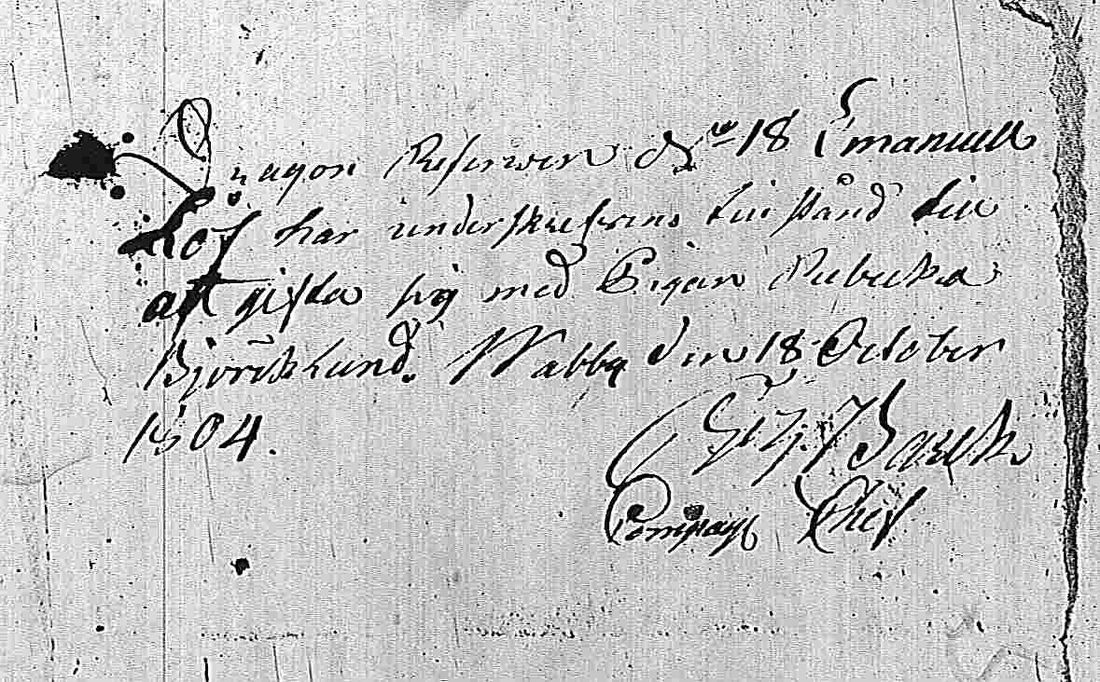 Dragon Reserven N:o 18 Emanuell
Löf har underskrefvens tillstånd till
att gifta sig med Pigan Rebecka
Björcklund. Wabby den 18 October
1804.
Compag Chef